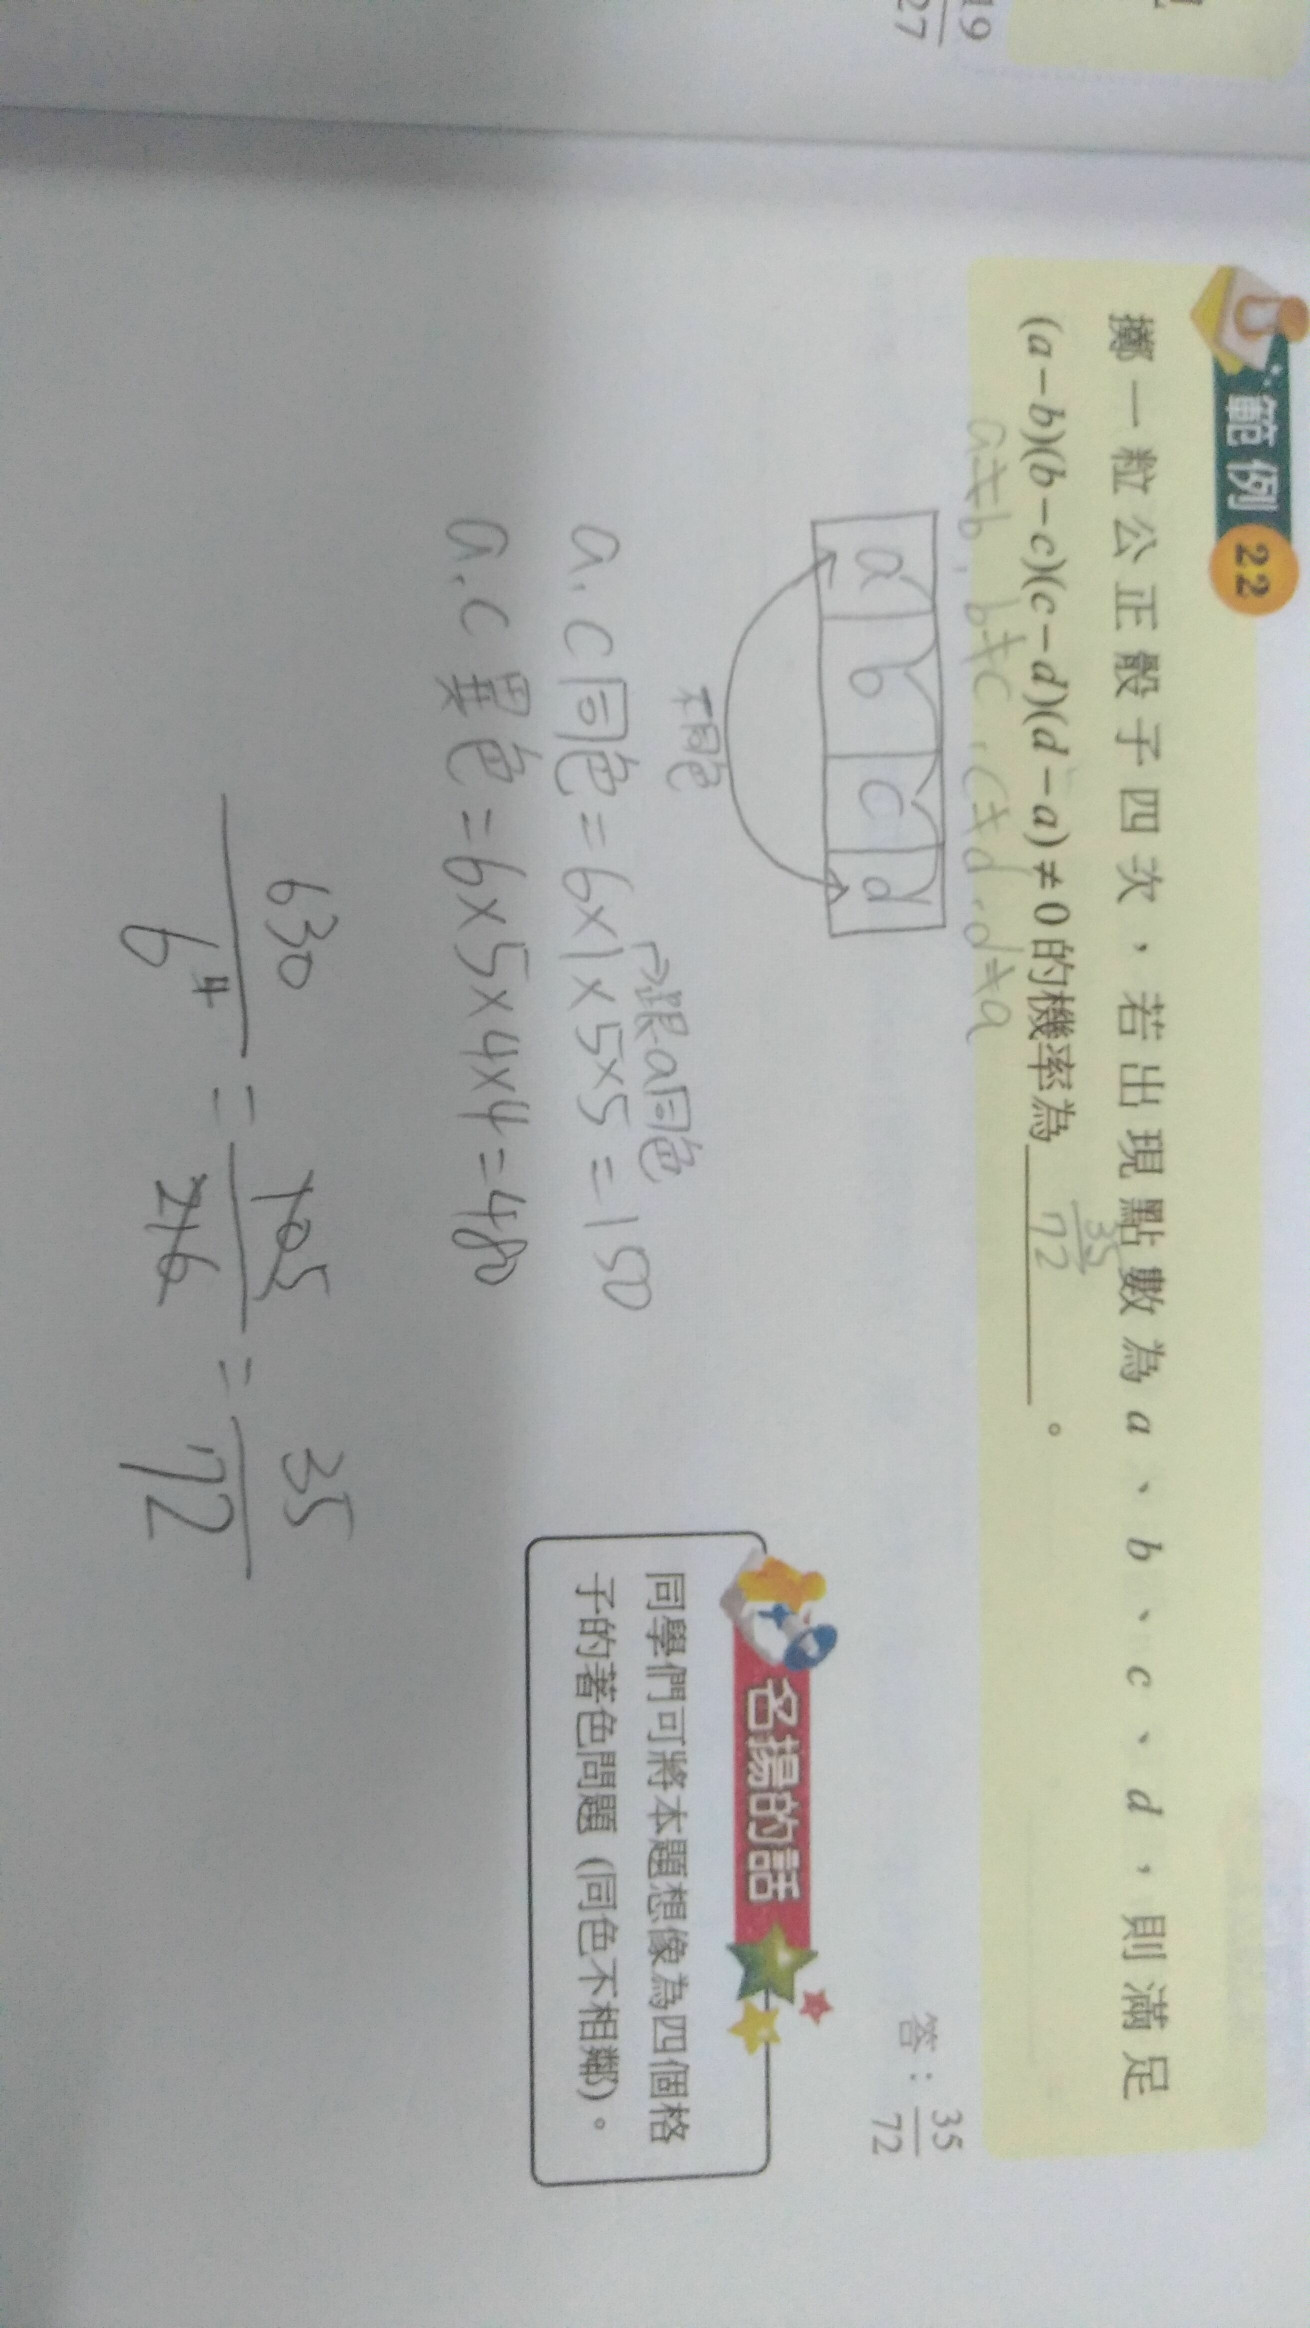 19
27
範例 22
擲一粒公正骰子四次，若出現點數為 a、b、c、d，則滿足
(a−b)(b−c)(c−d)(d−a)≠0 的機率為 35/72 。
a≠b, b≠c, c≠d, d≠a
答：35/72
a b c d
不同色
→跟a同色
a.c同色=6×1×5×5=150
a.c異色=6×5×4×4=480
630/6⁴ = 105/216 = 35/72
名揚的話
同學們可將本題想像為四個格
子的著色問題 (同色不相鄰)。